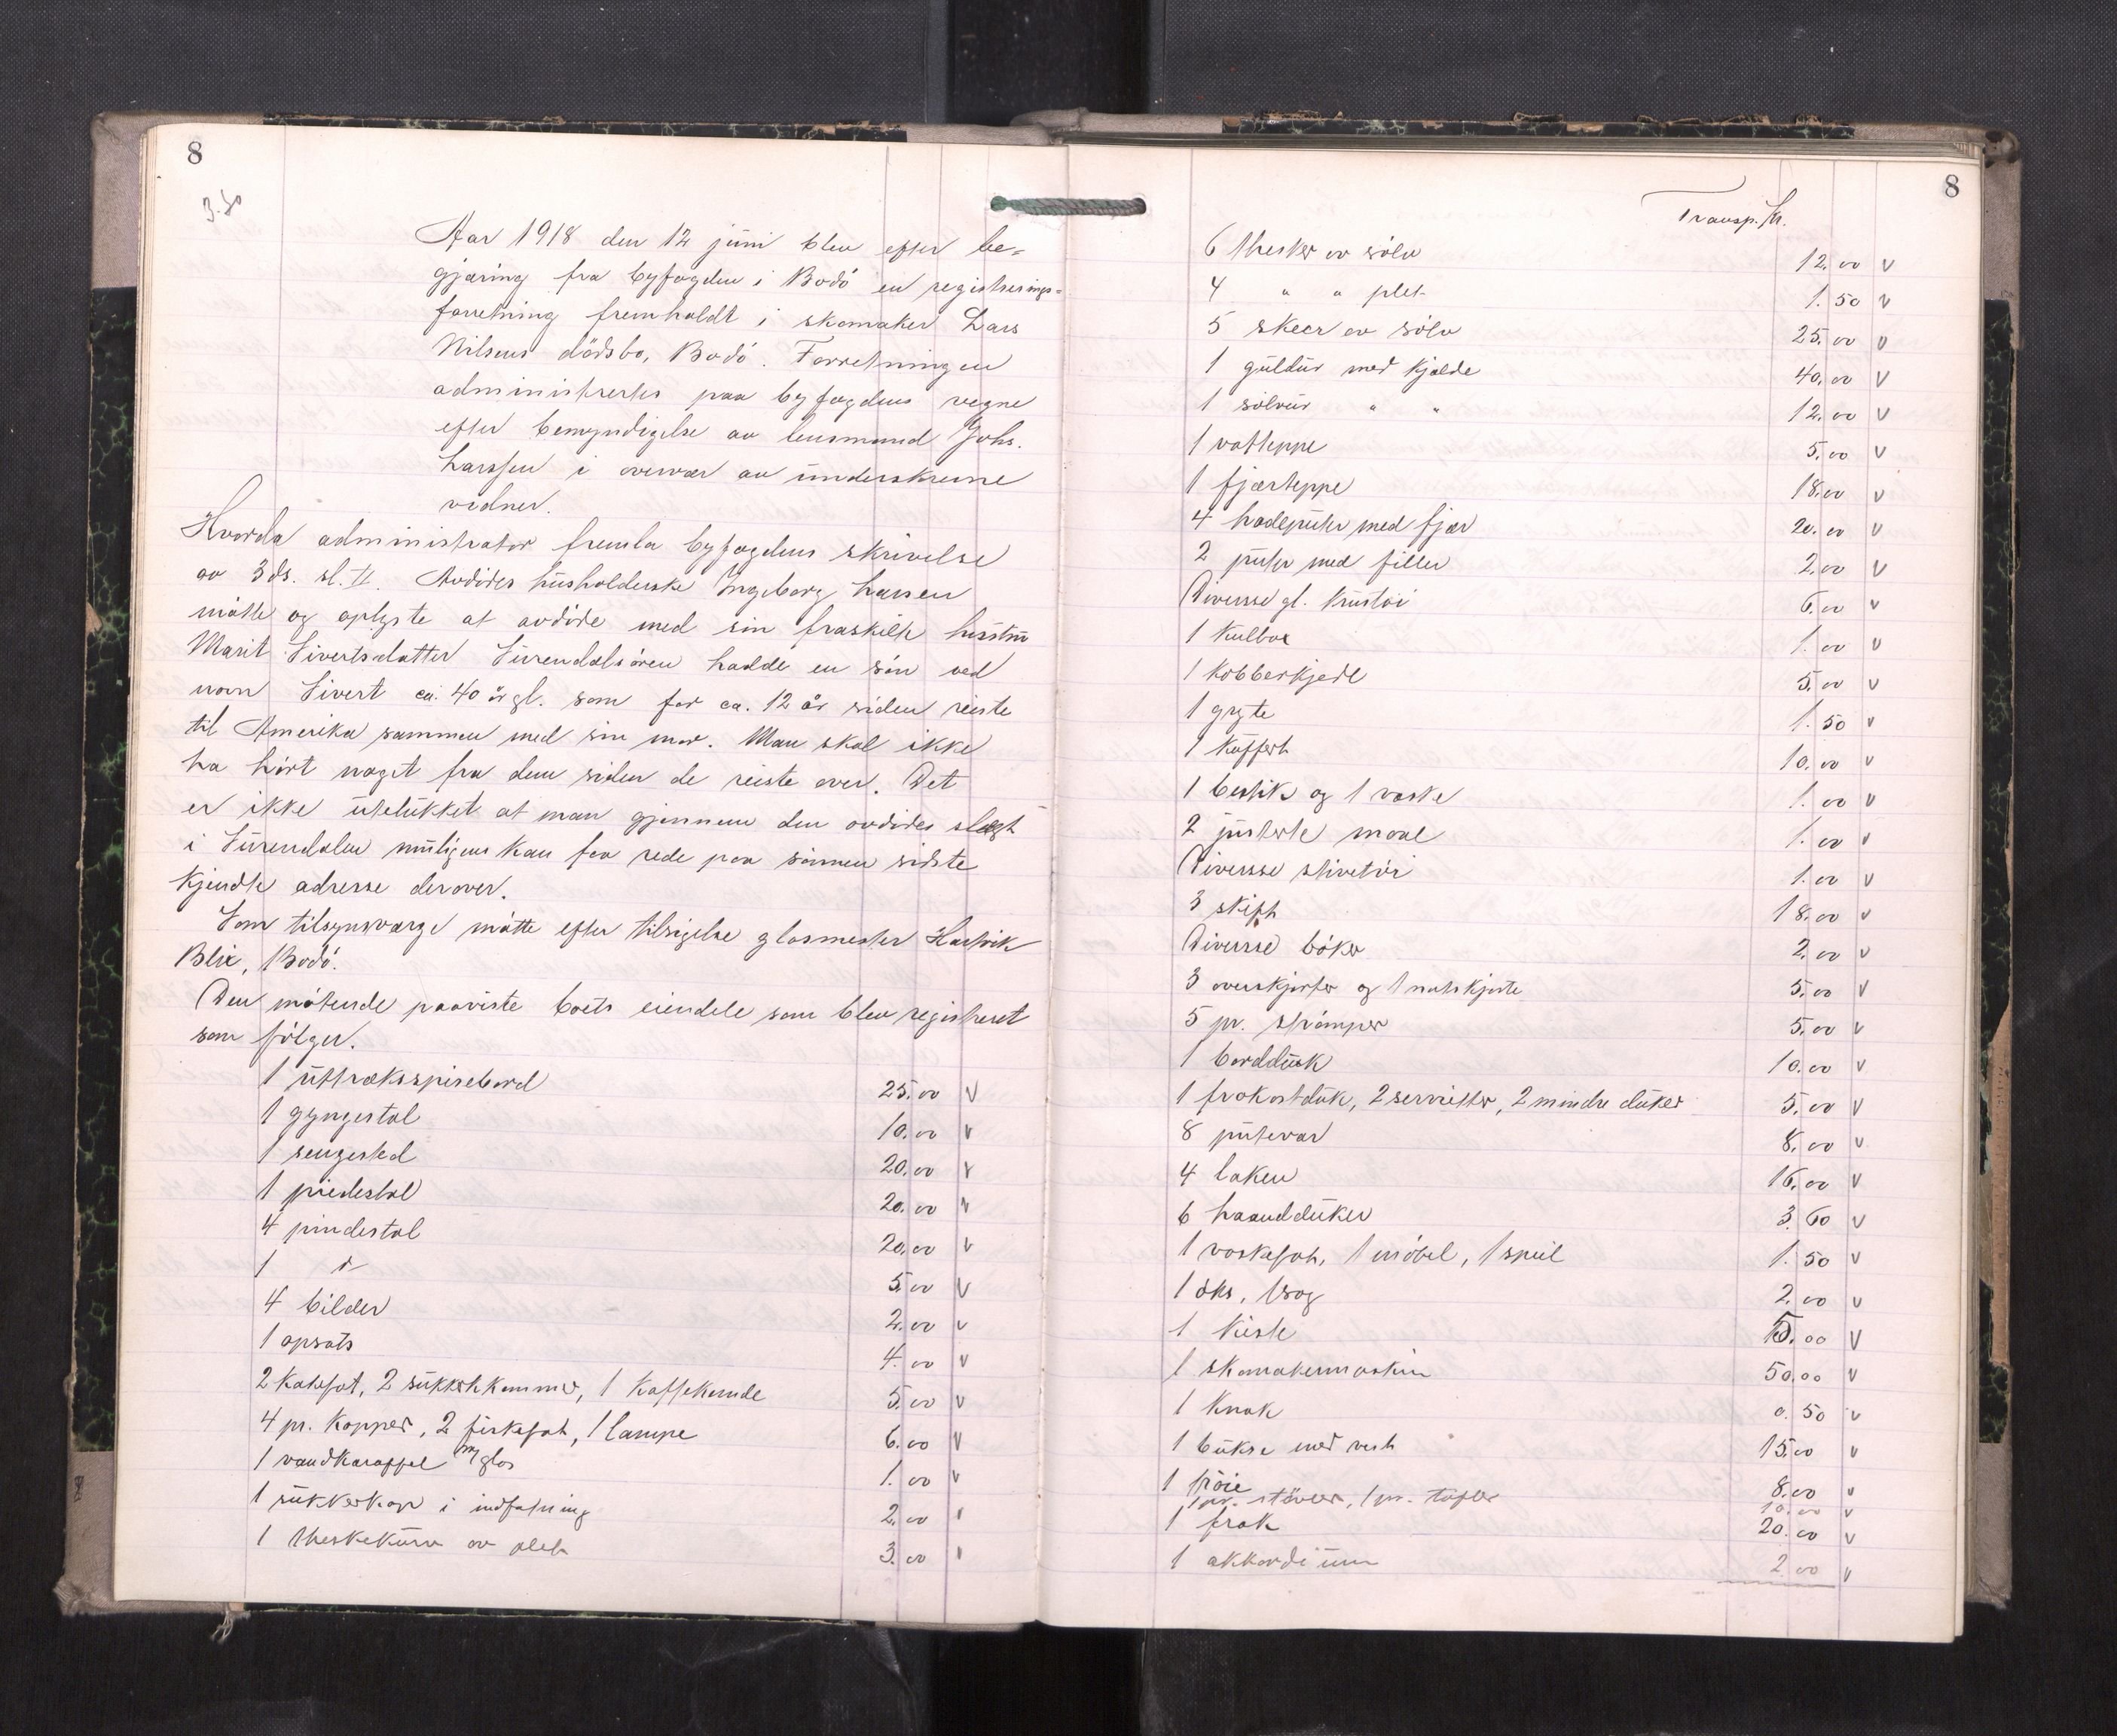 8
3.80
Aar 1918 den 12 juni blev efter be=
gjæring fra byfogden i Bodö en registrerings=
forretning fremholdt i skomaker Lars
Nilsens dödsbo, Bodö. Forretningen
administrertes paa byfogdens vegne
efter bemyndigelse av lensmand Johs.
Larssen i overvær av underskrevne
vidner.
Hvorda administrator fremla byfogdens skrivelse
av 3 ds. sl. Avdödes husholderske Ingeborg Larsen
mötte og oplyste at avdöde med sin fraskilte hustru
Marit Sivertsdatter Surendalsören hadde en sön ved
navn Sivert ca. 40 år gl. som for ca. 12 år siden reiste
til Amerika sammen med sin mor. Man skal ikke
ha hört noget fra dem siden de reiste over. Det
er ikke utelukket at man gjennem den avdödes slegt
i Surendalen muligens kan faa rede paa sönnen sidste
kjendte adresse derover.
Som tilsynsværge mötte efter tilsigelse glasmester Hartvik
Blix, Bodö.
Den mötende paaviste boets eiendele som blev registreret
som fölger.
1 uttræksspisebord 25.00 V
1 gyngestol 10.00 V
1 sengested 20.00 V
1 piedestal 20.00 V
4 pindestol 20.00 V
1 d 5.00 V
4 bilder 2.00 V
1 opsats 4.00 V
2 kakefat, 2 sukkerkkammer, 1 kaffekande 5.00 V
4 pr. kopper, 2 fiskefat, 1 lampe 6.00 V
1 vandkaraffel m/glas 1.00 V
1 sukkerkop i indfatning 2.00
1 theskekurv av plet 3.00
8
Transp. Kr.
6 thesker av sölv 12.00 V
4 " " plet 1.50 V
5 skeer av sölv 25.00 V
1 guldur med kjæde 40.00 V
1 sölvur " " 12.00 V
1 vatteppe 5.00 V
1 fjærteppe 18.00 V
4 hodeputer med fjær 20.00 V
2 puter med filler 2.00 V
Diversse gl. krustöi 6.00 V
1 kulbox 1.00 V
1 kobberkjedl 5.00 V
1 gryte 1.50 V
1 kuffert 10.00 V
1 bestik og 1 væske 1.00 V
2 justerte maal 1.00 V
Diversse stivetöi 1.00 V
3 skift 18.00 V
Diversse böker 2.00 V
3 overskjorter og 1 natskjorte 5.00 V
5 pr. strömper 5.00 V
1 bordduk 10.00 V
1 frokostduk, 2 servietter, 2 mindre duker 5.00 V
8 putevar 8.00 V
4 laken 16.00 V
6 haandduker 3.60 V
1 vaskefat, 1 möbel, 1 speil 1.50 V
1 öks, 1 sag 2.00 V
1 kiste 5.00 V
1 skomakermaskin 50.00 V
1 knak 0.50 V
1 bukse med vest 15.00 V
1 tröie 8.00 V
1 pr. stövler, 1 pr. töfler 10.00 V
1 frak 20.00 V
1 akkordium 2.00 V